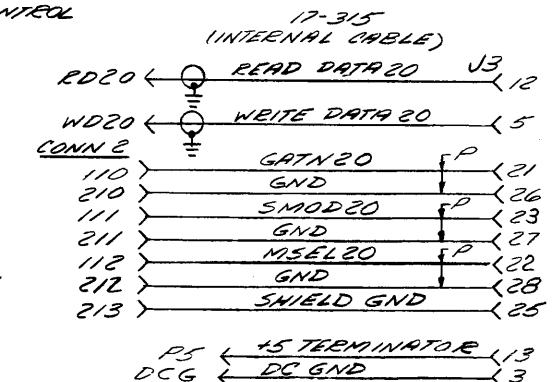 NTROL
17-315
(INTERNAL CABLE)
RD20 READ DATA 20 J3 12
WD20 WRITE DATA 20 5
CONN 2
110 GATN20 P 21
210 GND 26
111 SMOD20 P 23
211 GND 27
112 MSEL20 P 22
212 GND 28
213 SHIELD GND 25
P5 +5 TERMINATOR 13
DCG DC GND 3